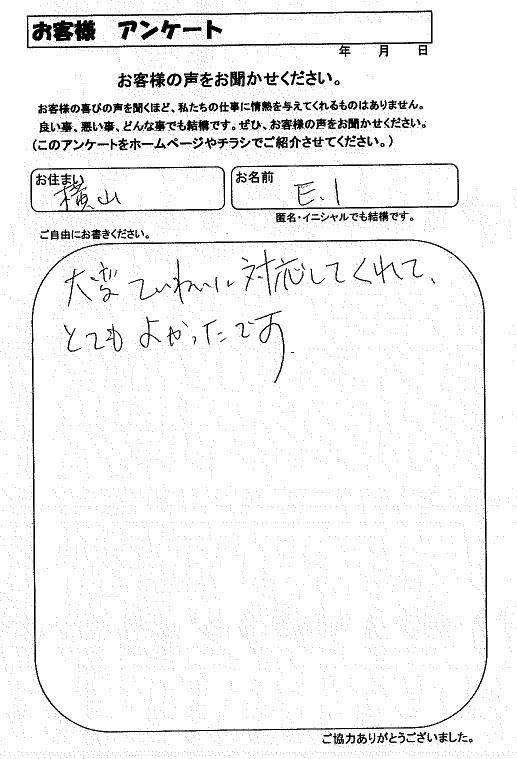 お客様 アンケート
年 月 日
お客様の声をお聞かせください。
お客様の喜びの声を聞くほど、私たちの仕事に情熱を与えてくれるものはありません。
良い事、悪い事、どんな事でも結構です。ぜひ、お客様の声をお聞かせください。
(このアンケートをホームページやチラシでご紹介させてください。)
お住まい
横山
お名前
E.I
匿名・イニシャルでも結構です。
ご自由にお書きください。
大変ていねいに対応してくれて、
とてもよかったです.
ご協力ありがとうございました。